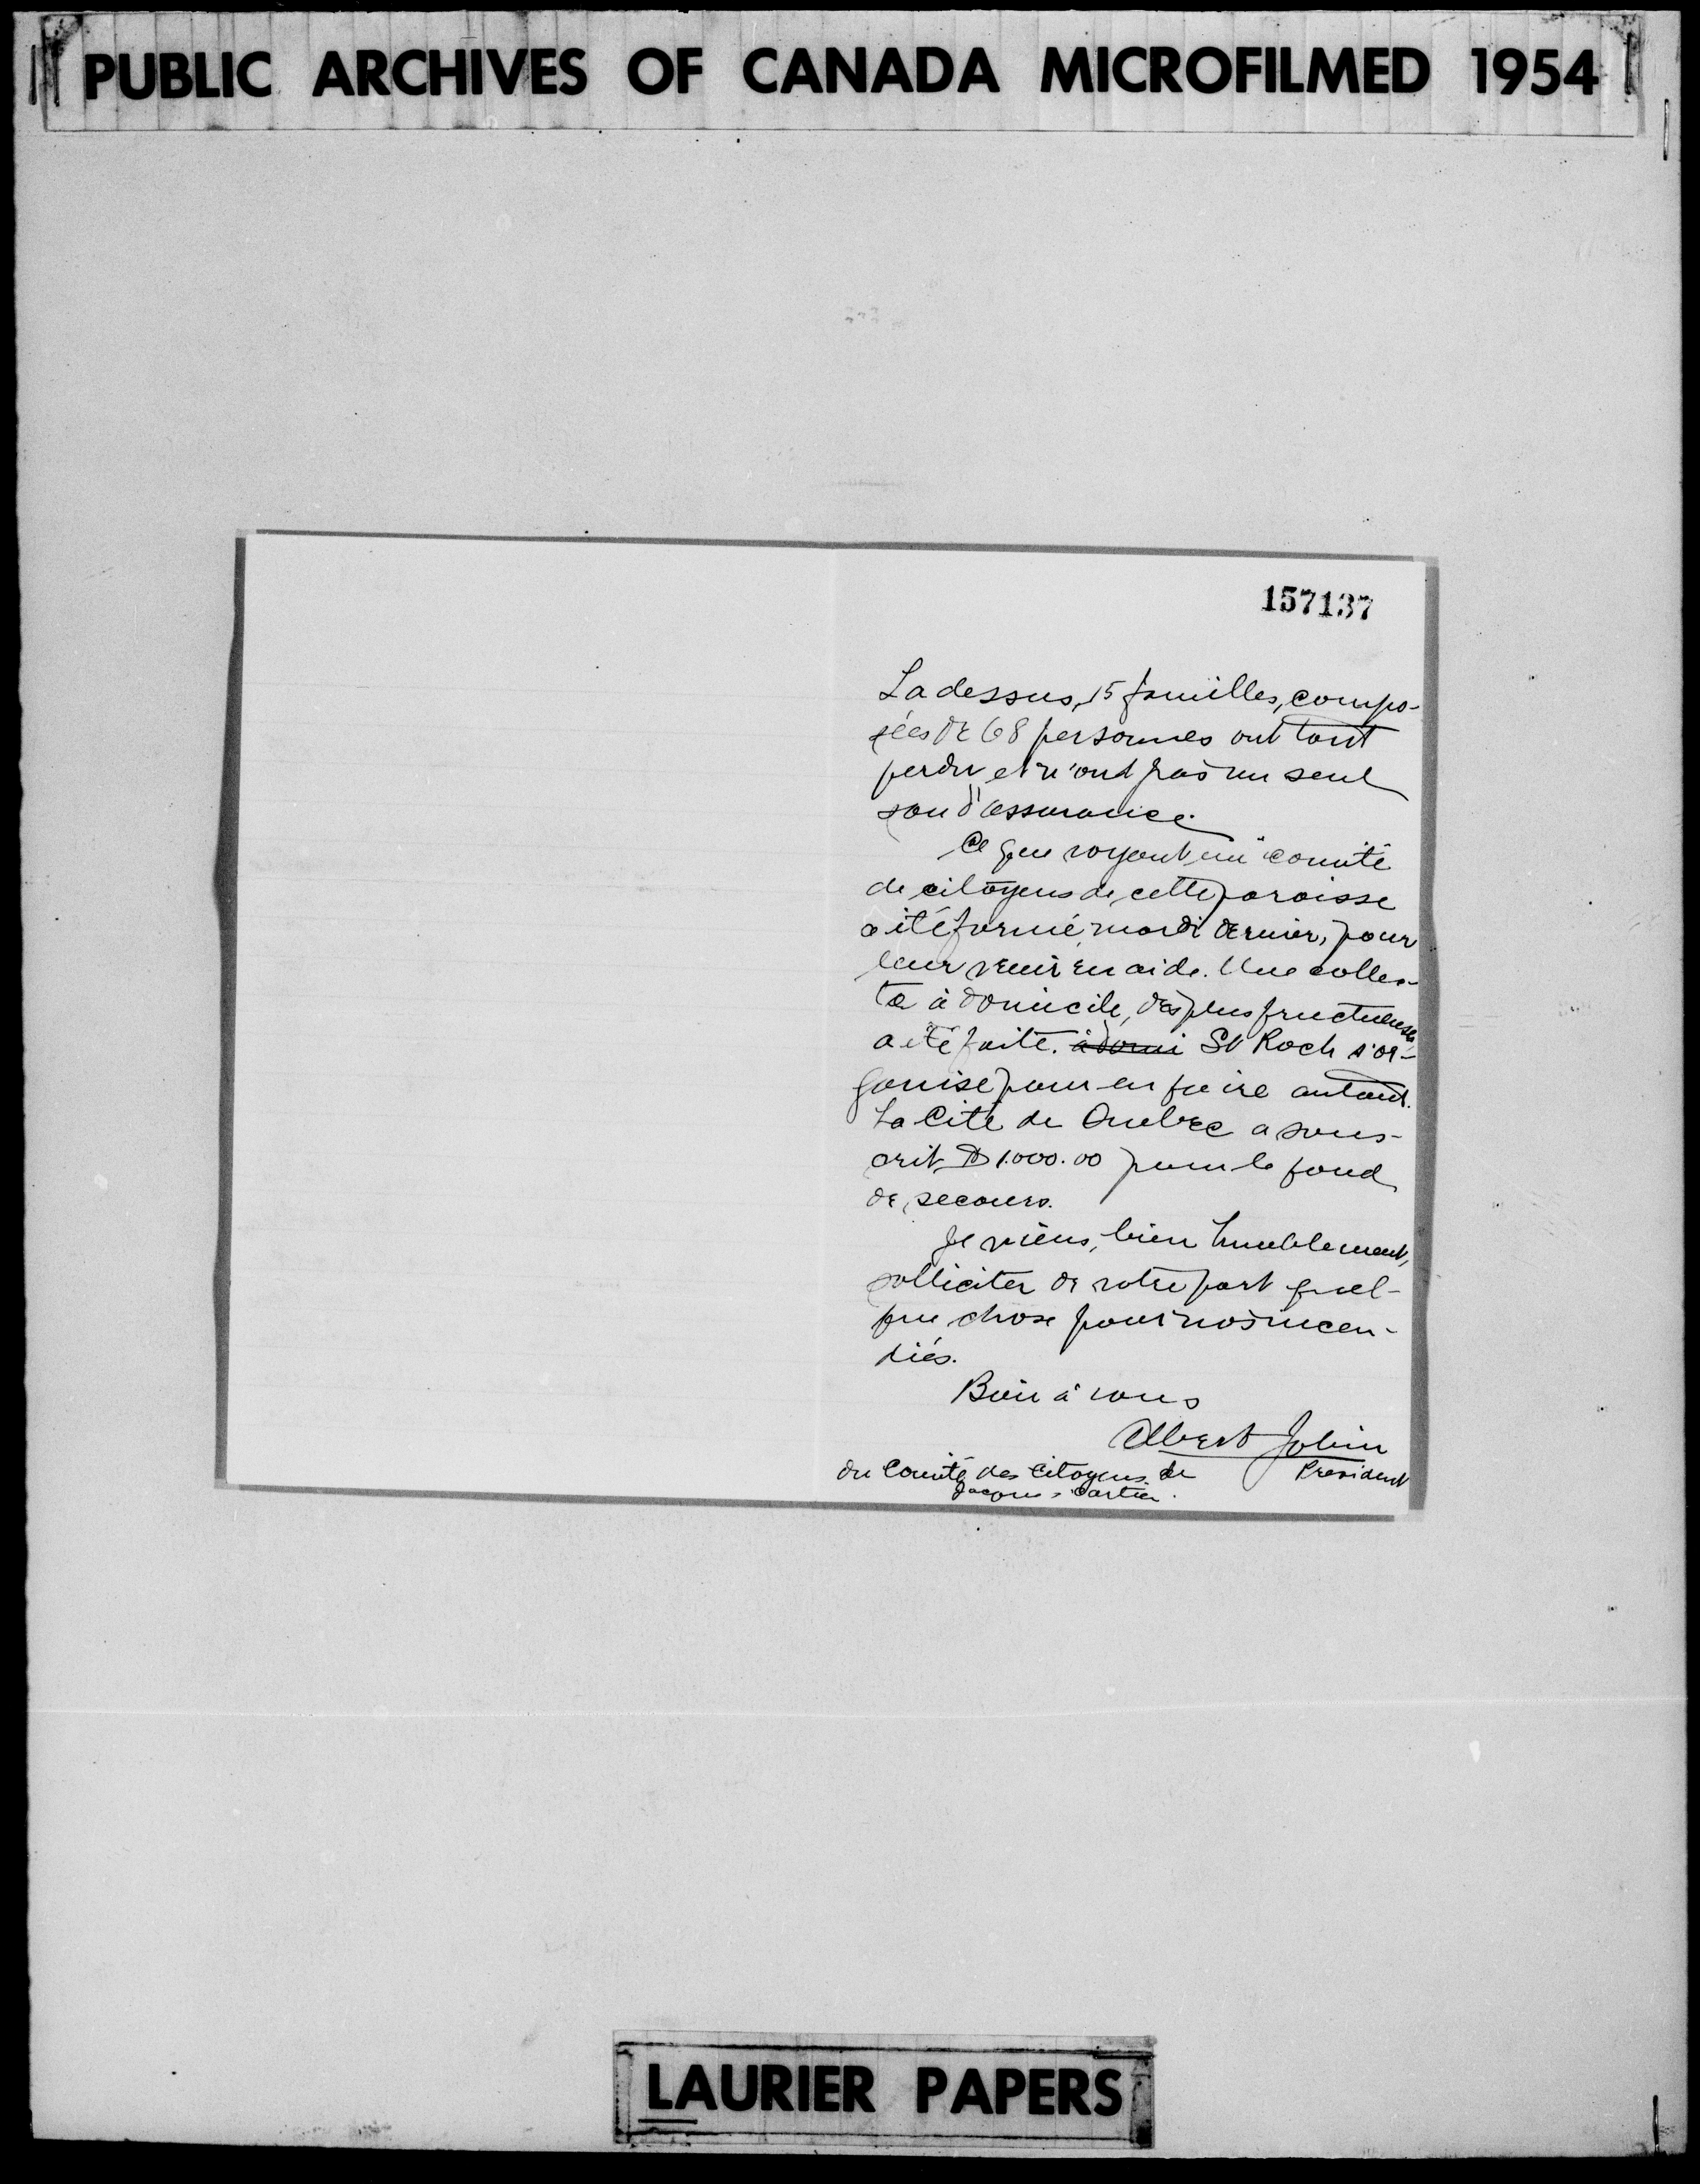 PUBLIC ARCHIVES OF CANADA MICROFILMED 1954
157137
La dessus, 15 familles, compo-
sées de 68 personnes ont tout
perdu et n'ont pas un seul
sou d'assurance.
Ce que voyant un comité
de citoyens de cette paroisse
a été formé, mardi dernier, pour
leur venir en aide. Une collec-
te à domicile, des plus fructueuses
a été faite. à domi St Roch s'or-
ganise pour en faire autant.
La Cité de Quebec a sous-
crit $1.000.00 pour le fond
de secours.
Je viens, bien humblement,
solliciter de votre part quel-
que chose pour nos incen-
diés.
Bien à vous
Albert Jobin
President
du Comité des Citoyens de
Jacques-Cartier.
LAURIER PAPERS